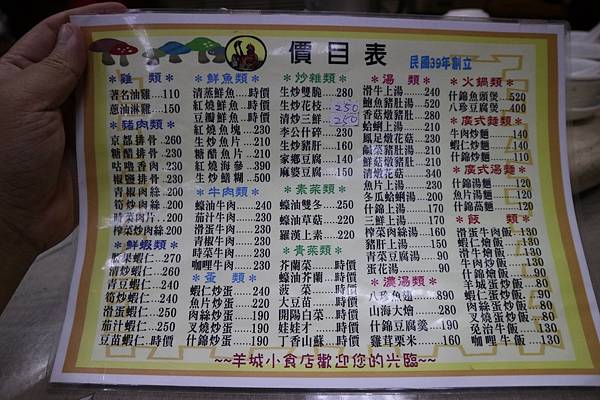 價目表
民國39年創立
＊雞 類＊
著名油雞...110
蔥油淋雞...150
＊豬肉類＊
京都排骨...260
糖醋排骨...230
咕嚕香肉...230
椒鹽排骨...230
青椒肉絲...200
筍炒肉絲...200
時菜肉片...200
榨菜炒肉絲200
＊鮮蝦類＊
腰果蝦仁...260
清炒蝦仁...260
青豆蝦仁...240
筍炒蝦仁...240
滑蛋蝦仁...240
茄汁蝦仁...240
豆苗蝦仁..時價
＊鮮魚類＊
清蒸鮮魚...時價
紅燒鮮魚...時價
豆瓣鮮魚...時價
紅燒魚塊...230
生炒魚片...210
糖醋魚片...210
紅燒海參...390
生炒鱔糊...500
＊牛肉類＊
蠔油牛肉...240
茄汁牛肉...230
滑蛋牛肉...230
青椒牛肉...230
時菜牛肉...230
咖哩牛肉...230
＊蛋 類＊
蝦仁炒蛋...240
魚片炒蛋...220
肉絲炒蛋...190
叉燒炒蛋...190
什錦炒蛋...190
＊炒雜類＊
生炒雙脆...280
生炒花枝...250
清炒三鮮...250
李公什碎...230
生炒豬肝...160
家鄉豆腐...140
麻婆豆腐...140
＊素菜類＊
蠔油雙冬...250
蠔油草菇...220
羅漢上素...220
＊青菜類＊
芥蘭菜...時價
蠔油芥蘭...時價
菠菜...時價
大豆苗...時價
開陽白菜...時價
娃娃才...時價
丁香山蘇...時價
＊湯 類＊
滑牛上湯...240
鮑魚豬肚湯520
香菇燉豬肚280
蛤蜊上湯...210
鳳足燉花菇230
鹹菜豬肚湯210
鮮菇燉豬肚230
清燉花菇...340
魚片上湯...210
冬瓜蛤蜊湯210
什錦上湯...170
三鮮上湯...170
榨菜肉絲湯160
豬肝上湯...150
青菜豆腐湯90
蛋花湯...50
＊濃湯類＊
八珍魚翅...890
山海大燴...210
什錦豆腐羹...190
雞茸栗米...160
＊火鍋類＊
什錦魚頭煲..520
八珍豆腐煲..400
＊廣式麵類＊
牛肉炒麵...140
蝦仁炒麵...140
什錦炒麵...110
＊廣式湯麵＊
什錦湯麵...120
魚片湯麵...120
什錦窩麵...120
＊飯 類＊
滑蛋牛肉飯130
蝦仁燴飯...130
滑牛肉飯...130
什錦燴飯...110
羊城炒飯...90
蝦仁蛋炒飯..90
肉絲炒飯...80
叉燒炒飯...80
免治牛飯...130
咖哩牛飯...130
~~羊城小食店歡迎您的光臨~~